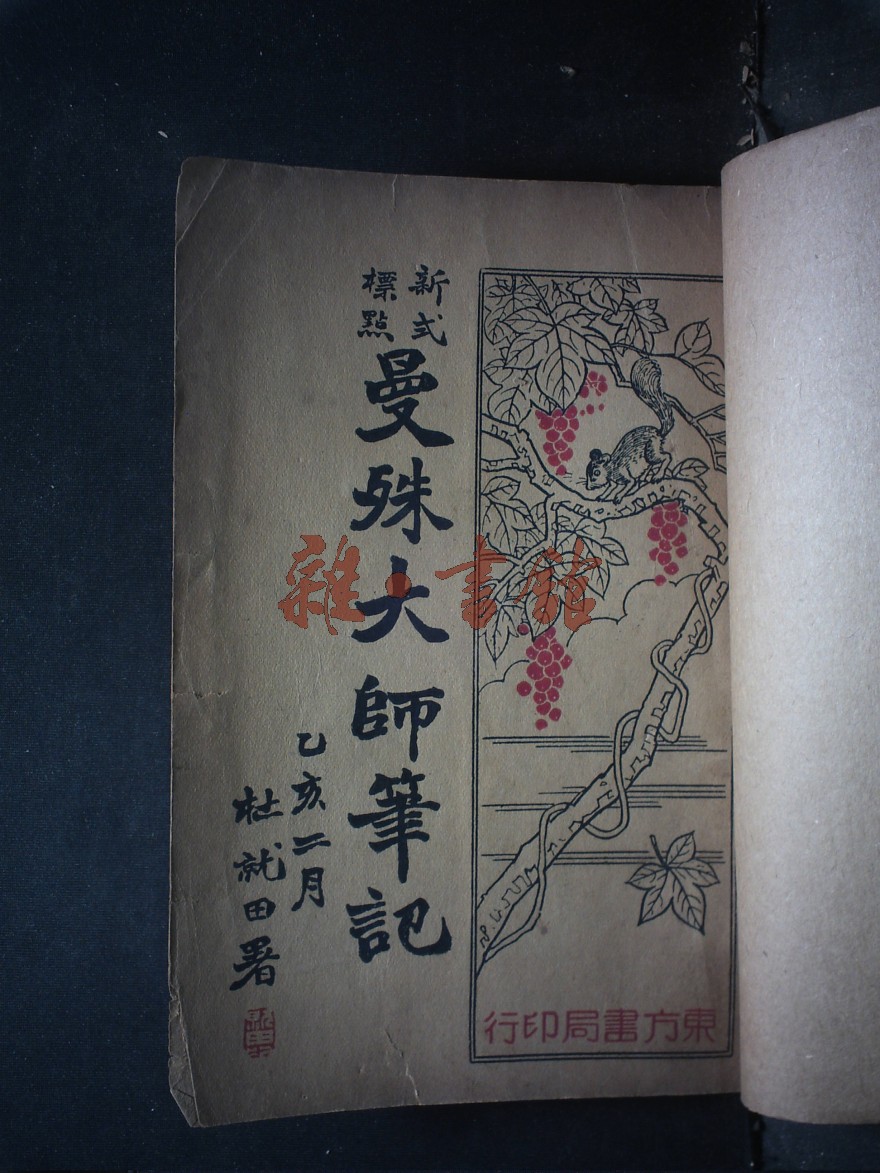 新式
標點
曼殊大師筆記
乙亥二月
杜就田署
東方書局印行
雜·書館